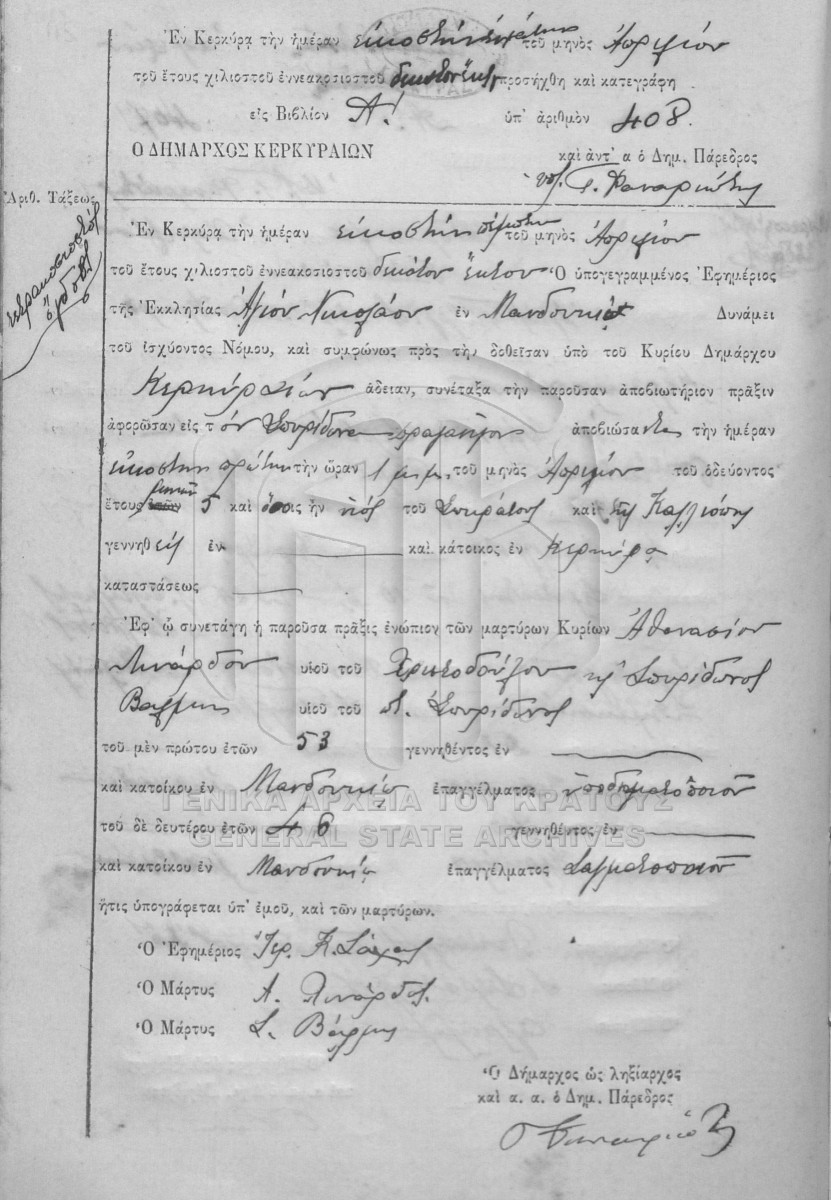 Ἐν Κερκύρᾳ τὴν ἡμέραν εἰκοστὴν τοῦ μηνὸς Ἀπριλίου
τοῦ ἔτους χιλιοστοῦ ἐννεακοσιοστοῦ δεκάτου ἕκτου προσήχθη καὶ κατεγράφη
εἰς Βιβλίον Α! ὑπ' ἀριθμὸν 408
Ο ΔΗΜΑΡΧΟΣ ΚΕΡΚΥΡΑΙΩΝ
καὶ ἀντ' α ὁ Δημ. Πάρεδρος
Ἀριθ. Τάξεως
τετρακοσιοστὸς ὄγδοος
Ἐν Κερκύρᾳ τὴν ἡμέραν εἰκοστὴν πέμπτην τοῦ μηνὸς Ἀπριλίου
τοῦ ἔτους χιλιοστοῦ ἐννεακοσιοστοῦ δεκάτου ἕκτου Ὁ ὑπογεγραμμένος Ἐφημέριος
τῆς Ἐκκλησίας Ἁγίου Νικολάου ἐν Μανδουκίῳ Δυνάμει
τοῦ ἰσχύοντος Νόμου, καὶ συμφώνως πρὸς τὴν δοθεῖσαν ὑπὸ τοῦ Κυρίου Δημάρχου
Κερκυραίων ἄδειαν, συνέταξα τὴν παροῦσαν ἀποβιωτήριον πρᾶξιν
ἀφορῶσαν εἰς τ ὸν Σπυρίδωνα ἀποβιώσαντα τὴν ἡμέραν
εἰκοστὴν πρώτην τὴν ὥραν 1 μ.μ. τοῦ μηνὸς Ἀπριλίου τοῦ ὁδεύοντος
ἔτους ἐτῶν 5 καὶ ὅστις ἦν υἱὸς τοῦ Σωκράτους καὶ τῆς Καλλιόπης
γεννηθεὶς ἐν καὶ κάτοικος ἐν Κερκύρᾳ
καταστάσεως
Ἐφ' ᾧ συνετάγη ἡ παροῦσα πρᾶξις ἐνώπιον τῶν μαρτύρων Κυρίων Ἀθανασίου
Λινάρδου υἱοῦ τοῦ Χριστοδούλου κ Σπυρίδωνος
Βάρμπη υἱοῦ τοῦ π. Σπυρίδωνος
τοῦ μὲν πρώτου ἐτῶν 53 γεννηθέντος ἐν
καὶ κατοίκου ἐν Μανδουκίῳ ἐπαγγέλματος ὑποδηματοποιοῦ
ΓΕΝΙΚΑ ΑΡΧΕΙΑ ΤΟΥ ΚΡΑΤΟΥΣ
τοῦ δὲ δευτέρου ἐτῶν 46 γεννηθέντος ἐν
GENERAL STATE ARCHIVES
καὶ κατοίκου ἐν Μανδουκίῳ ἐπαγγέλματος Σαγματοποιοῦ
ἥτις ὑπογράφεται ὑπ' ἐμοῦ, καὶ τῶν μαρτύρων.
Ὁ Ἐφημέριος Ἱερ. Κ.
Ὁ Μάρτυς Α. Λινάρδος
Ὁ Μάρτυς Σ.
Ὁ Δήμαρχος ὡς ληξίαρχος
καὶ α. α. ὁ Δημ. Πάρεδρος